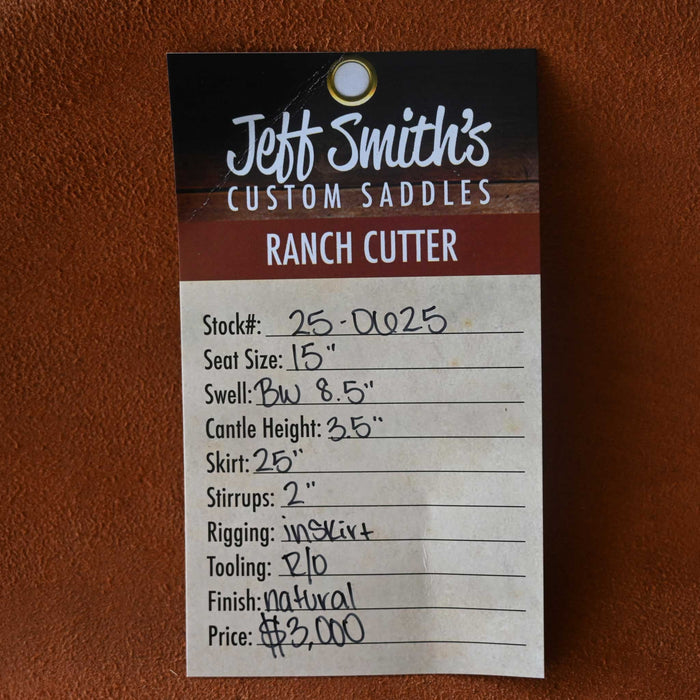 Jeff Smith's
CUSTOM SADDLES
RANCH CUTTER
Stock#: 25-0625
Seat Size: 15"
Swell: BW 8.5"
Cantle Height: 3.5"
Skirt: 25"
Stirrups: 2"
Rigging: inskirt
Tooling: R/O
Finish: natural
Price: $3,000